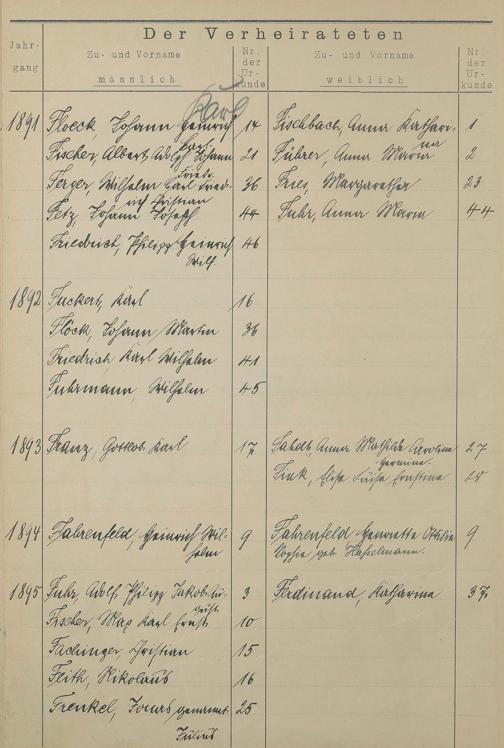 Der Verheirateten
Jahr-
gang
Zu- und Vorname
männlich
Nr.
der
Ur-
kunde
Zu- und Vorname
weiblich
Nr.
der
Ur-
kunde
Karl
1891 Floeck, Johann Heinrich 14 Fischbach, Anna Kathari- 1
na
Fischer, Albert, Adolf Johann 21 Führer, Anna Maria 2
Friedr.
Ferger, Wilhelm Carl Fried- 36 Fries, Margaretha 23
rich Christian
Fetz, Johann Joseph 44 Fuhr, Anna Maria 44
Friedrich, Philipp Heinrich 46
Wilh.
1892 Fuckert, Karl 16
Flöck, Johann Martin 36
Friedrich, Karl Wilhelm 41
Fuhrmann, Wilhelm 45
1893 Franz, Gottlob Karl 17 Anna Mathilde Caroline 27
Fink, Elise Luise Ernstine 28
1894 Fahrenfeld, Heinrich Wil- 9 Fahrenfeld Henriette Ottilie 9
helm Sophie geb. Hasselmann.
1895 Fuhr, Adolf Philipp Jakob 3 Ferdinand, Katharina 37
Fischer, Max Karl Ernst 10
Fachinger, Christian 15
Feith, Nikolaus 16
Frenkel, genannt 25
Julius